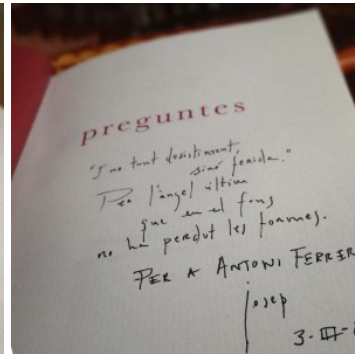 preguntes
"I no tant desistiment,
sinó ferida."
Per l'àngel últim
que en el fons
no ha perdut les formes.
PER A ANTONI FERRER
Josep
3-III-